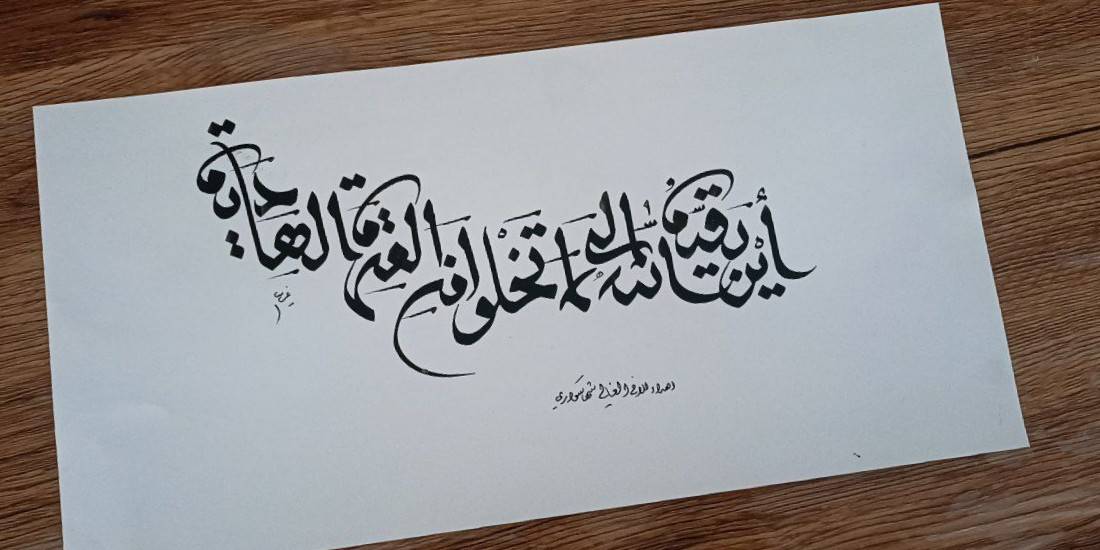 أين بقية الله التي لا تخلو من العترة الهادية
اهداء للاخ الغالي